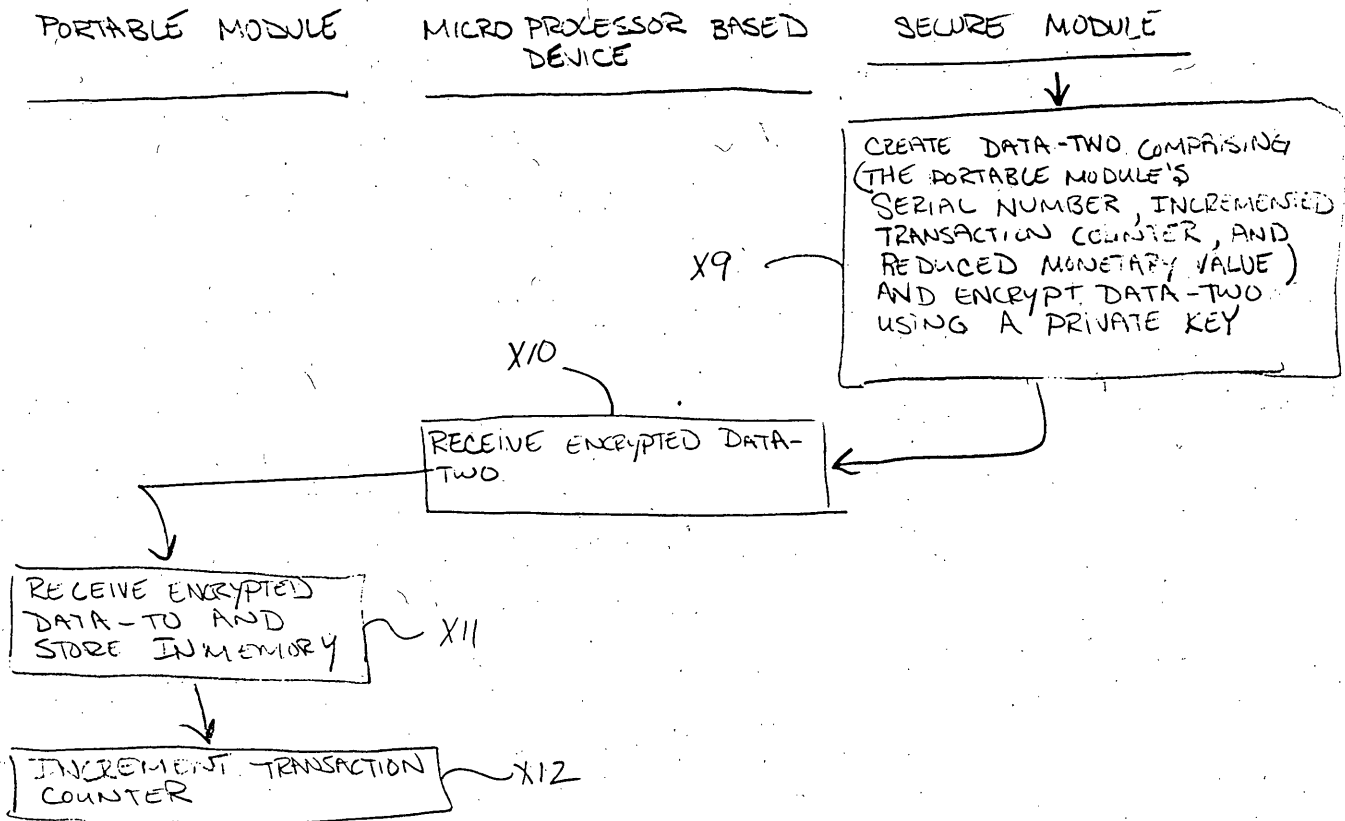 PORTABLE MODULE
MICRO PROCESSOR BASED
DEVICE
SECURE MODULE
CREATE DATA-TWO COMPRISING
(THE PORTABLE MODULE'S
SERIAL NUMBER, INCREMENTED
TRANSACTION COUNTER, AND
REDUCED MONETARY VALUE)
AND ENCRYPT DATA-TWO
USING A PRIVATE KEY
X9
X10
RECEIVE ENCRYPTED DATA-
TWO
RECEIVE ENCRYPTED
DATA-TO AND
STORE IN MEMORY
X11
INCREMENT TRANSACTION
COUNTER
X12